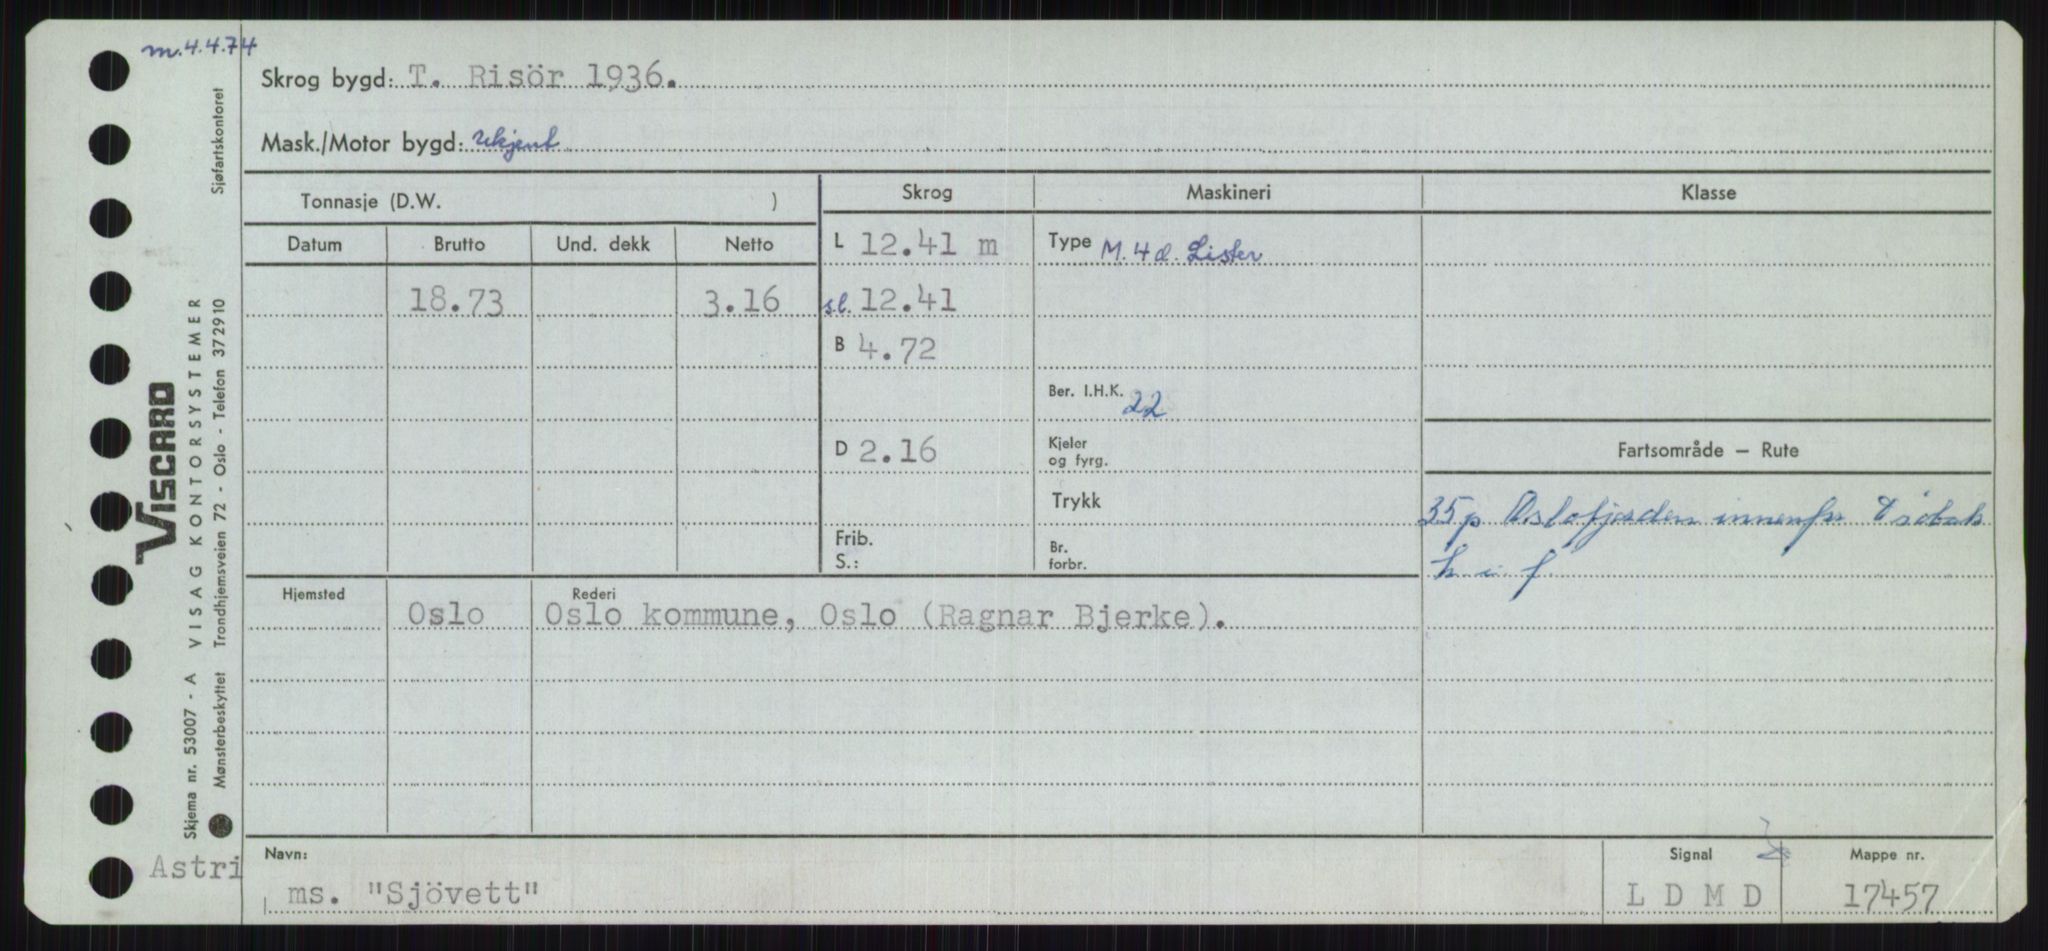 m. 4.4.74
Skrog bygd: T. Risör 1936.
Mask./Motor bygd: Ukjent
Tonnasje (D.W. )
Skrog
Maskineri
Klasse
Datum Brutto Und. dekk Netto
L 12.41 m
Type M. 4 d. Lister
18.73 3.16
s.l. 12.41
B 4.72
Ber. I.H.K. 22
D 2.16
Kjeler
og fyrg.
Fartsområde — Rute
Trykk
35 p Oslofjorden innenfor
Frib.
S.:
Br.
forbr.
Hjemsted Rederi
Oslo Oslo kommune, Oslo (Ragnar Bjerke).
Navn:
Signal
Mappe nr.
Astri
ms. "Sjövett"
L D M D
17457
VISCARD
Skjema nr. 53007 - A VISAG KONTORSYSTEMER
Mønsterbeskyttet Trondhjemsveien 72 - Oslo - Telefon 372910 Sjøfartskontoret